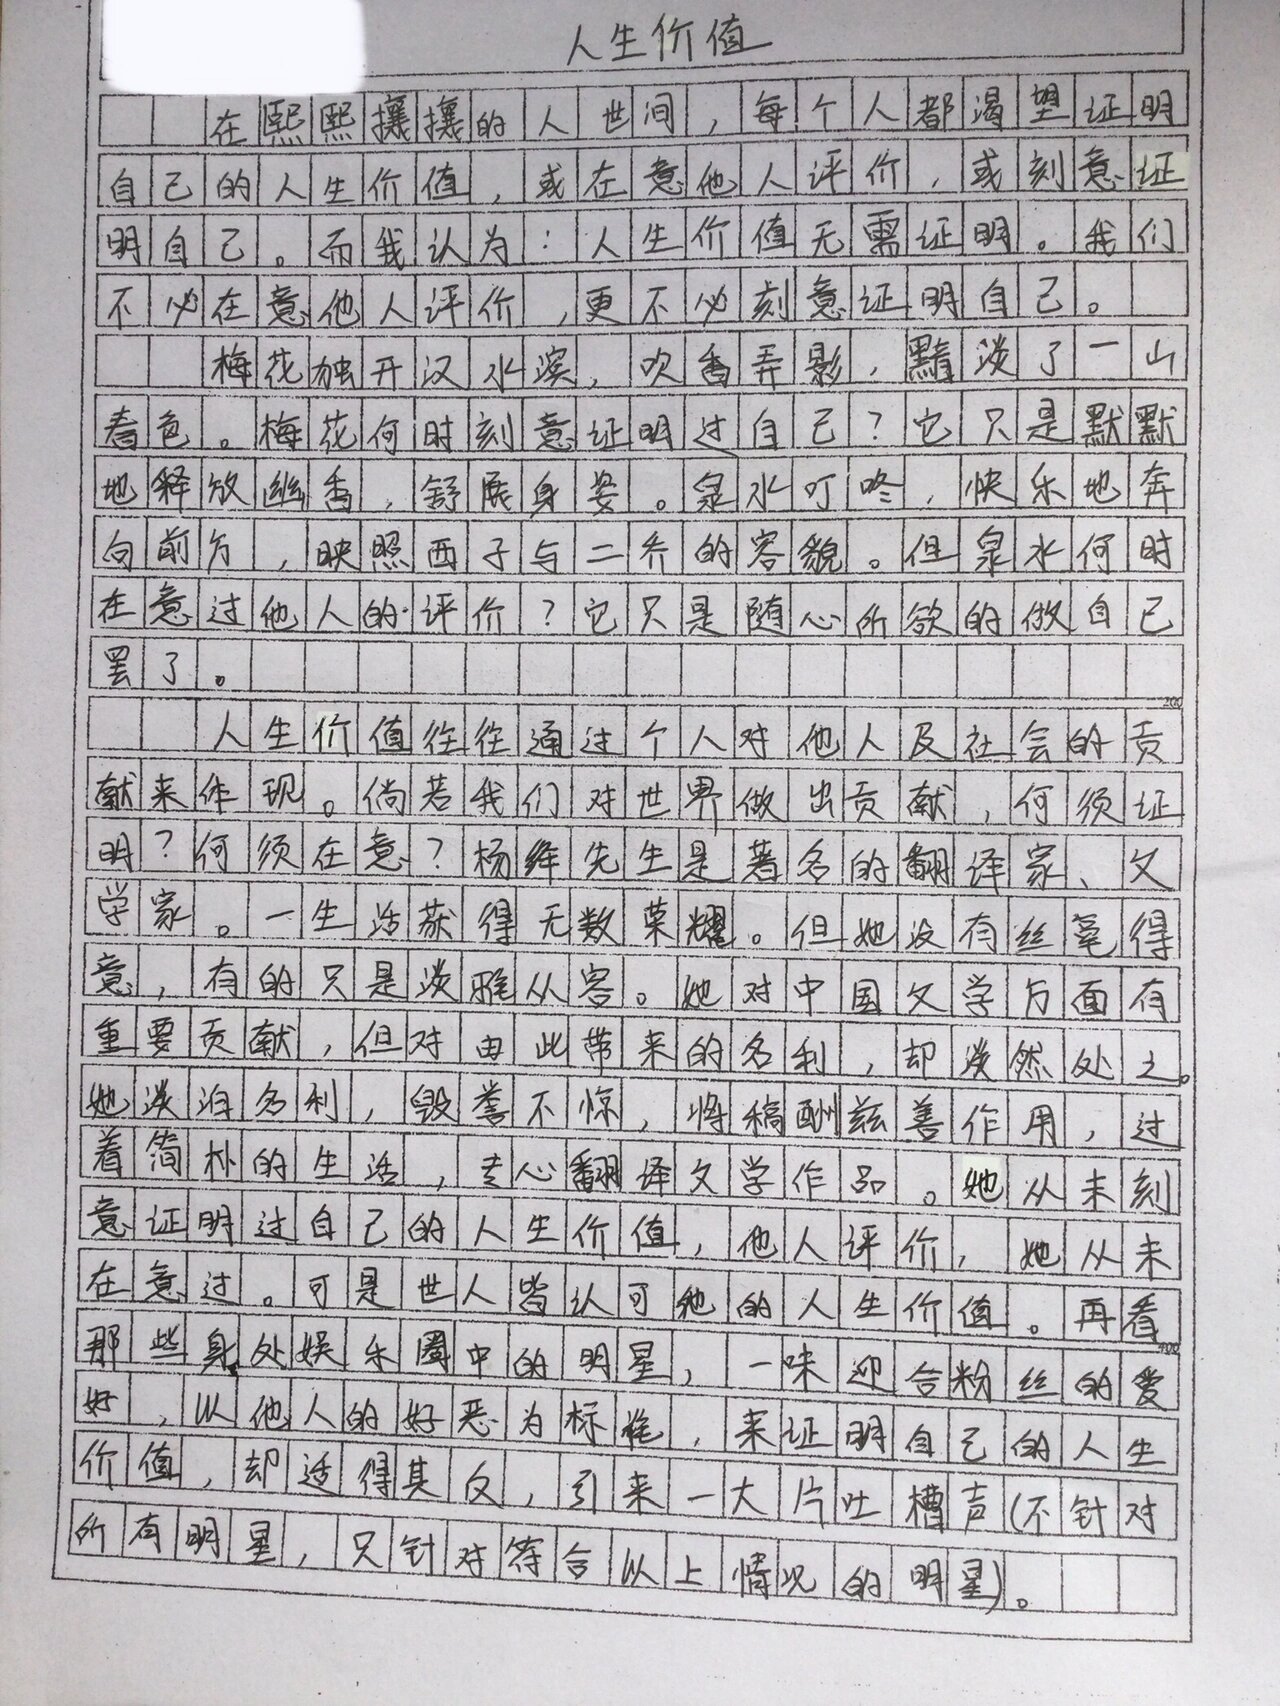 人生价值
在熙熙攘攘的人世间，每个人都渴望证明
自己的人生价值，或在意他人评价，或刻意证
明自己。而我认为：人生价值无需证明。我们
不必在意他人评价，更不必刻意证明自己。
梅花独开汉水滨，吹香弄影，黯淡了一山
春色。梅花何时刻意证明过自己？它只是默默
地释放幽香，舒展身姿。泉水叮咚，快乐地奔
向前方，映照西子与二乔的容貌。但泉水何时
在意过他人的评价？它只是随心所欲的做自己
罢了。
200
人生价值往往通过个人对他人及社会的贡
献来体现。倘若我们对世界做出贡献，何须证
明？何须在意？杨绛先生是著名的翻译家、文
学家。一生活获得无数荣耀。但她没有丝毫得
意，有的只是淡雅从容。她对中国文学方面有
重要贡献，但对由此带来的名利，却淡然处之。
她淡泊名利，毁誉不惊，将稿酬慈善作用，过
着简朴的生活，专心翻译文学作品。她从未刻
意证明过自己的人生价值，他人评价，她从未
在意过。可是世人皆认可她的人生价值。再看
400
那些身处娱乐圈中的明星，一味迎合粉丝的爱
好，以他人的好恶为标准，来证明自己的人生
价值，却适得其反，引来一大片吐槽声(不针对
所有明星，只针对符合以上情况的明星)。